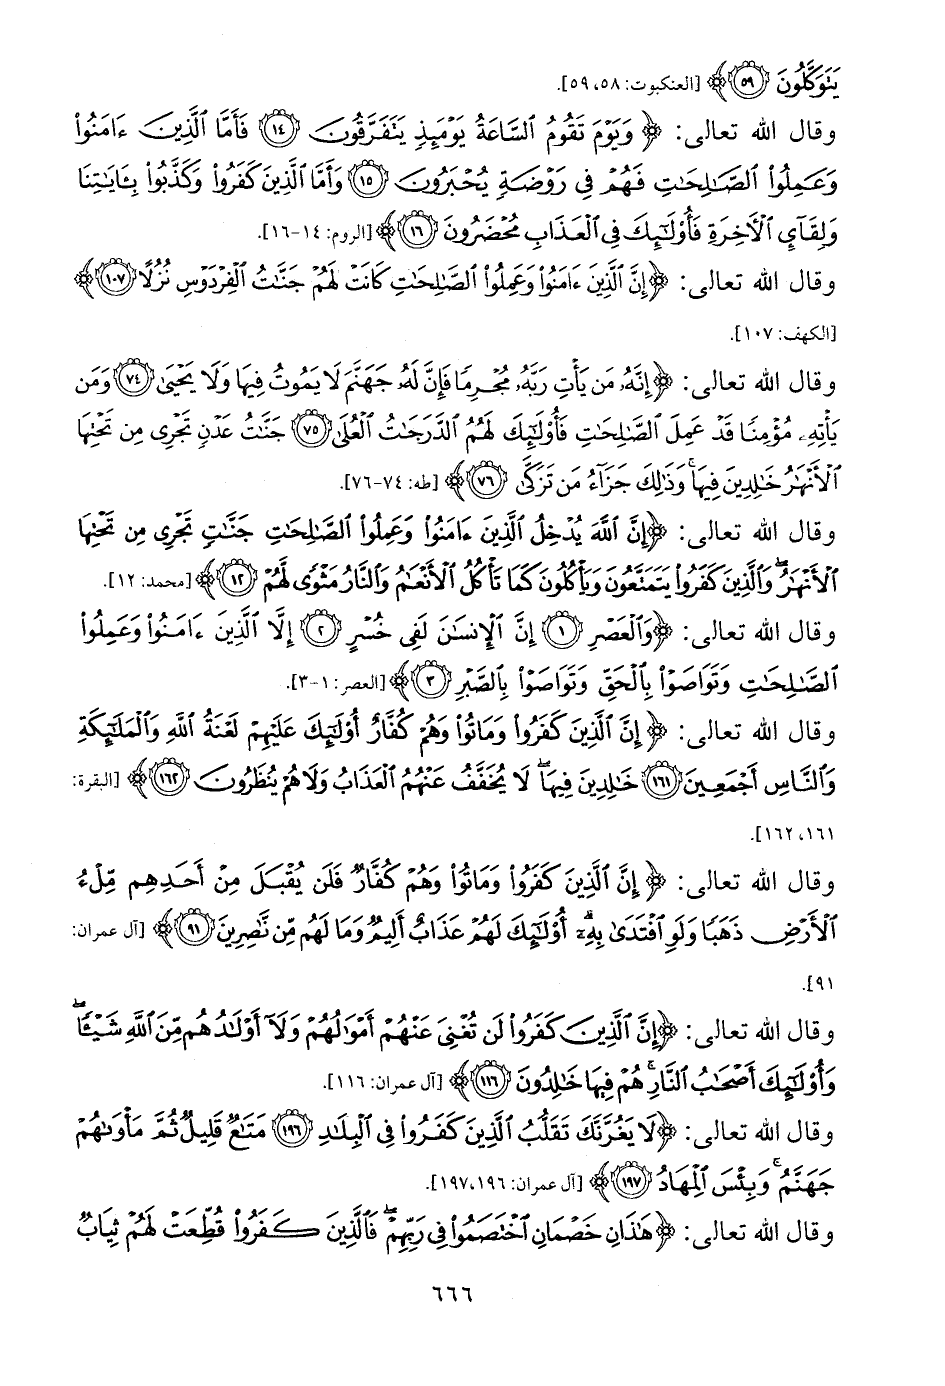 يَتَوَكَّلُونَ ﴿٥٩﴾ [العنكبوت: ٥٨، ٥٩].
وقال الله تعالى: ﴿وَيَوْمَ تَقُومُ السَّاعَةُ يَوْمَئِذٍ يَتَفَرَّقُونَ ﴿١٤﴾ فَأَمَّا الَّذِينَ ءَامَنُوا
وَعَمِلُوا الصَّالِحَاتِ فَهُمْ فِي رَوْضَةٍ يُحْبَرُونَ ﴿١٥﴾ وَأَمَّا الَّذِينَ كَفَرُوا وَكَذَّبُوا بِـَٔايَاتِنَا
وَلِقَآئِ الْأَخِرَةِ فَأُوْلَـٰٓئِكَ فِي الْعَذَابِ مُحْضَرُونَ ﴿١٦﴾ [الروم: ١٤-١٦].
وقال الله تعالى: ﴿إِنَّ الَّذِينَ ءَامَنُوا وَعَمِلُوا الصَّالِحَاتِ كَانَتْ لَهُمْ جَنَّاتُ الْفِرْدَوْسِ نُزُلًا ﴿١٠٧﴾
[الكهف: ١٠٧].
وقال الله تعالى: ﴿إِنَّهُ مَن يَأْتِ رَبَّهُ مُجْرِمًا فَإِنَّ لَهُ جَهَنَّمَ لَا يَمُوتُ فِيهَا وَلَا يَحْيَىٰ ﴿٧٤﴾ وَمَن
يَأْتِهِ مُؤْمِنًا قَدْ عَمِلَ الصَّالِحَاتِ فَأُوْلَـٰٓئِكَ لَهُمُ الدَّرَجَاتُ الْعُلَىٰ ﴿٧٥﴾ جَنَّاتُ عَدْنٍ تَجْرِي مِن تَحْتِهَا
الْأَنْهَارُ خَالِدِينَ فِيهَا ۚ وَذَٰلِكَ جَزَآءُ مَن تَزَكَّىٰ ﴿٧٦﴾ [طه: ٧٤-٧٦].
وقال الله تعالى: ﴿إِنَّ اللَّهَ يُدْخِلُ الَّذِينَ ءَامَنُوا وَعَمِلُوا الصَّالِحَاتِ جَنَّاتٍ تَجْرِي مِن تَحْتِهَا
الْأَنْهَارُ ۖ وَالَّذِينَ كَفَرُوا يَتَمَتَّعُونَ وَيَأْكُلُونَ كَمَا تَأْكُلُ الْأَنْعَامُ وَالنَّارُ مَثْوًى لَّهُمْ ﴿١٢﴾ [محمد: ١٢].
وقال الله تعالى: ﴿وَالْعَصْرِ ﴿١﴾ إِنَّ الْإِنسَانَ لَفِي خُسْرٍ ﴿٢﴾ إِلَّا الَّذِينَ ءَامَنُوا وَعَمِلُوا
الصَّالِحَاتِ وَتَوَاصَوْا بِالْحَقِّ وَتَوَاصَوْا بِالصَّبْرِ ﴿٣﴾ [العصر: ١-٣].
وقال الله تعالى: ﴿إِنَّ الَّذِينَ كَفَرُوا وَمَاتُوا وَهُمْ كُفَّارٌ أُوْلَـٰٓئِكَ عَلَيْهِمْ لَعْنَةُ اللَّهِ وَالْمَلَـٰٓئِكَةِ
وَالنَّاسِ أَجْمَعِينَ ﴿١٦١﴾ خَالِدِينَ فِيهَا ۖ لَا يُخَفَّفُ عَنْهُمُ الْعَذَابُ وَلَا هُمْ يُنظَرُونَ ﴿١٦٢﴾ [البقرة:
١٦١، ١٦٢].
وقال الله تعالى: ﴿إِنَّ الَّذِينَ كَفَرُوا وَمَاتُوا وَهُمْ كُفَّارٌ فَلَن يُقْبَلَ مِنْ أَحَدِهِم مِّلْءُ
الْأَرْضِ ذَهَبًا وَلَوِ افْتَدَىٰ بِهِ ۗ أُوْلَـٰٓئِكَ لَهُمْ عَذَابٌ أَلِيمٌ وَمَا لَهُم مِّن نَّاصِرِينَ ﴿٩١﴾ [آل عمران:
٩١].
وقال الله تعالى: ﴿إِنَّ الَّذِينَ كَفَرُوا لَن تُغْنِيَ عَنْهُمْ أَمْوَالُهُمْ وَلَآ أَوْلَادُهُم مِّنَ اللَّهِ شَيْئًا ۖ
وَأُوْلَـٰٓئِكَ أَصْحَابُ النَّارِ ۚ هُمْ فِيهَا خَالِدُونَ ﴿١١٦﴾ [آل عمران: ١١٦].
وقال الله تعالى: ﴿لَا يَغُرَّنَّكَ تَقَلُّبُ الَّذِينَ كَفَرُوا فِي الْبِلَادِ ﴿١٩٦﴾ مَتَاعٌ قَلِيلٌ ثُمَّ مَأْوَاهُمْ
جَهَنَّمُ ۚ وَبِئْسَ الْمِهَادُ ﴿١٩٧﴾ [آل عمران: ١٩٦، ١٩٧].
وقال الله تعالى: ﴿هَٰذَانِ خَصْمَانِ اخْتَصَمُوا فِي رَبِّهِمْ ۖ فَالَّذِينَ كَفَرُوا قُطِّعَتْ لَهُمْ ثِيَابٌ
٦٦٦